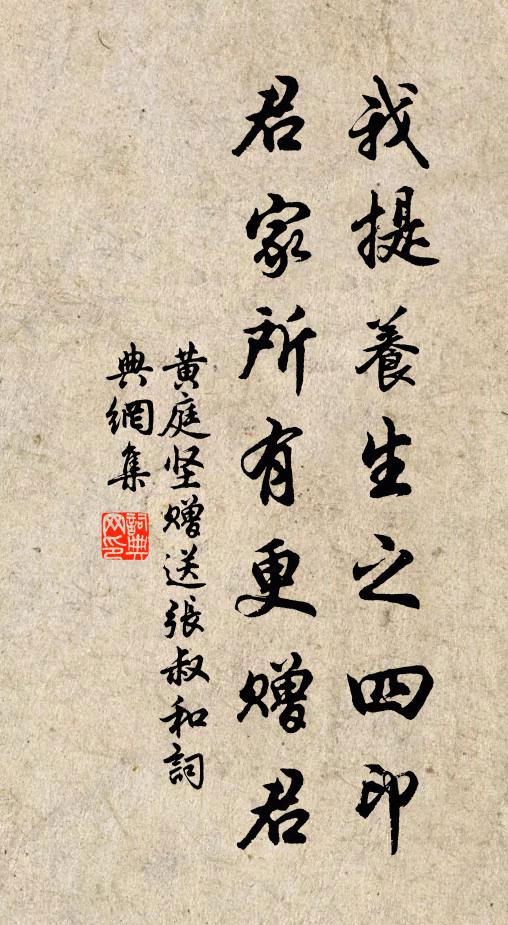 我提養生之四印
君家所有更赠君
黄庭坚赠送張叔和詞
典網集
詞典网印